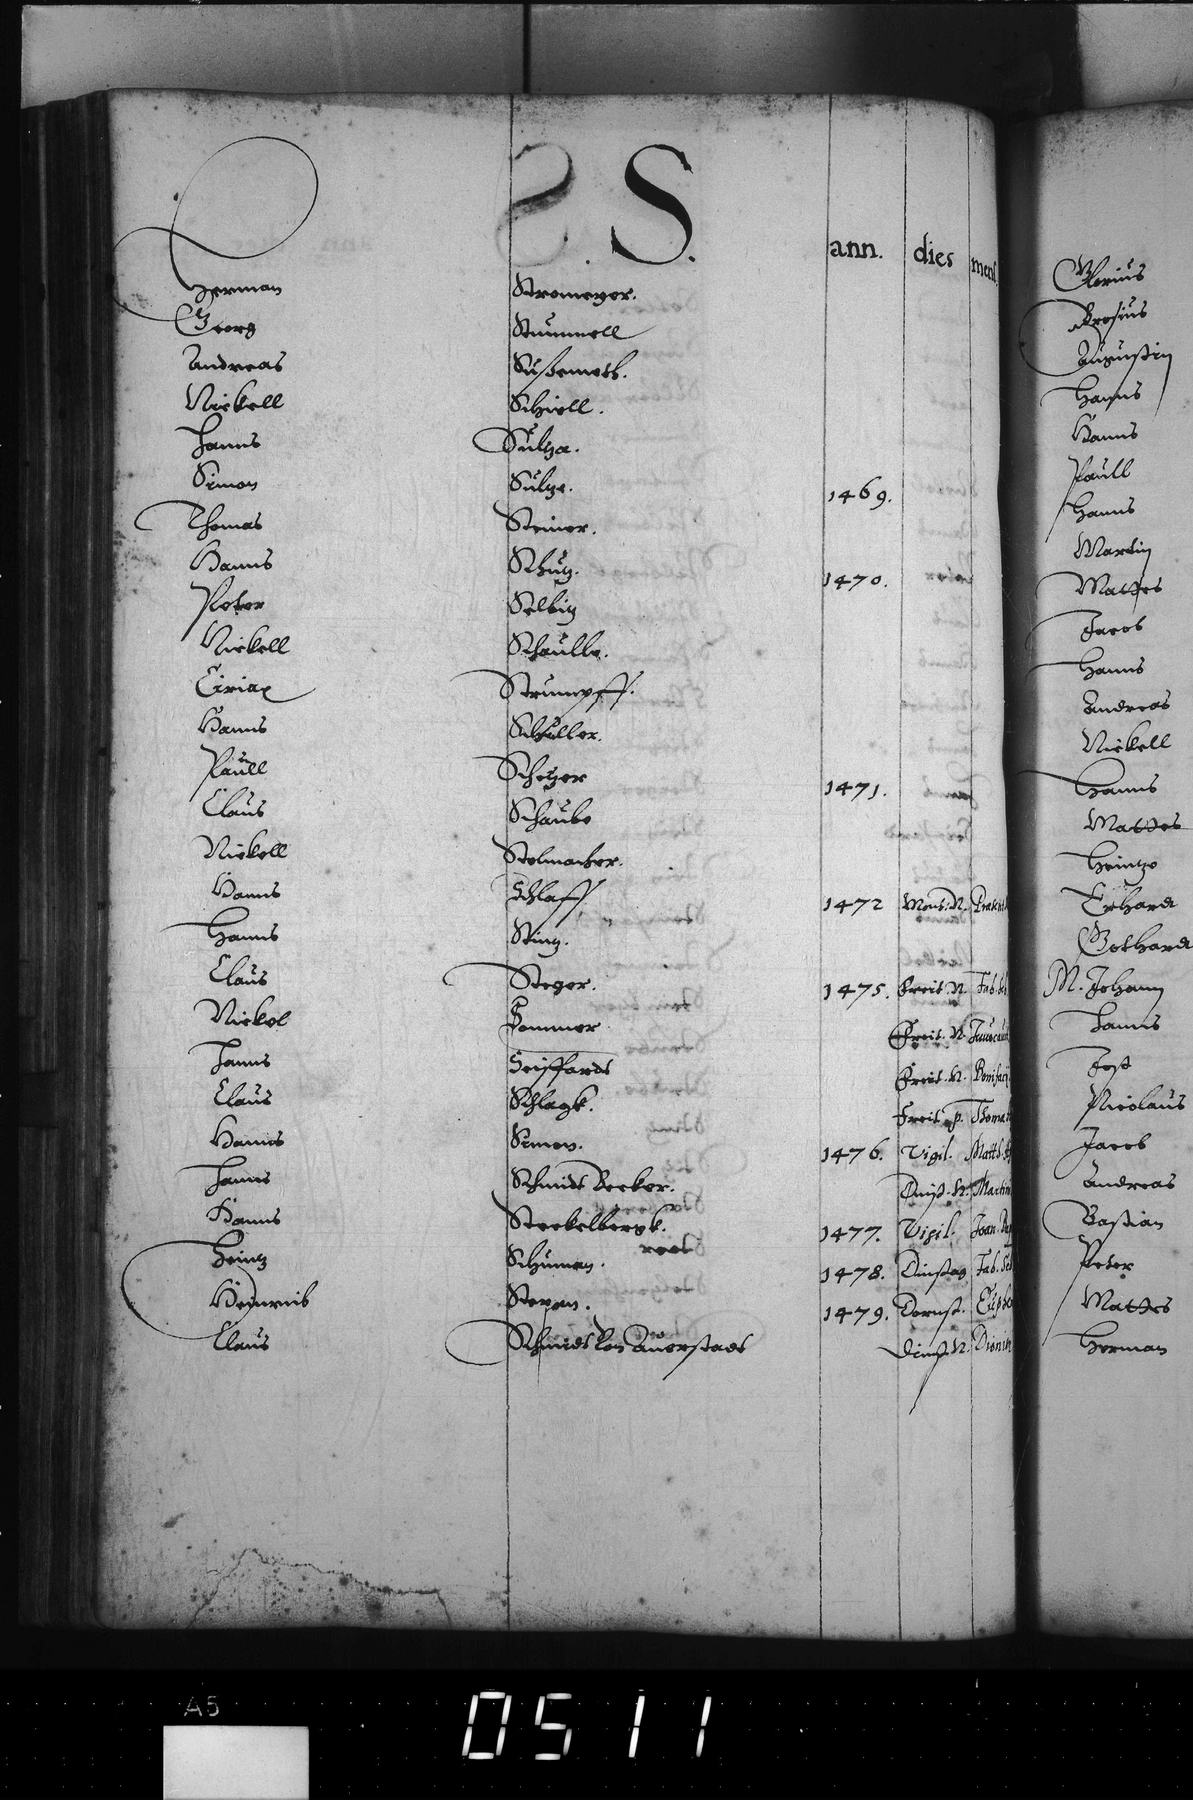 S.
ann. dies mens.
Herman Stromeyer.
Georg Stummell
Andreas Sussemoth.
Nickell Schiell.
Hanns Sultza.
Simon Sultze. 1469.
Thomas Steiner.
Hanns Schutz. 1470.
Peter Selbig
Nickell Schaulle.
Ciriax Strumpff.
Hanns Schuller.
Paull Schetzer 1471.
Claus Schaube
Nickell Stelmacher.
Hanns Schlaff 1472 Mont. N.
Hanns Sting.
Claus Steger. 1475. Freit. N. Fab. Seb
Nickol Sommer Freit. N. Invocavit
Hanns Seiffardt Freit. N. Bonifacij
Claus Schlagk. Freit. p. Thomae
Hanns Simon. 1476. Vigil. Matth.
Hanns Schmidt Becker. Dinst. N. Martini
Hanns Steckelbergk. 1477. Vigil. Joan. Bap
Heintz Schuman. 1478. Dinstag Fab. Seb
Heinrich Steven. 1479. Dornst.
Claus Schmidt von Auerstadt Dinst. N. Dionis
Glorius
Brosius
Augustin
Hanns
Hanns
Paull
Hanns
Martin
Mattes
Jacob
Hanns
Andreas
Nickell
Hanns
Mattes
Heintze
Erhardt
Gothardt
M. Johann
Hanns
Jost
Nicolaus
Jacob
Andreas
Bastian
Peter
Mattes
Herman
A5
0511